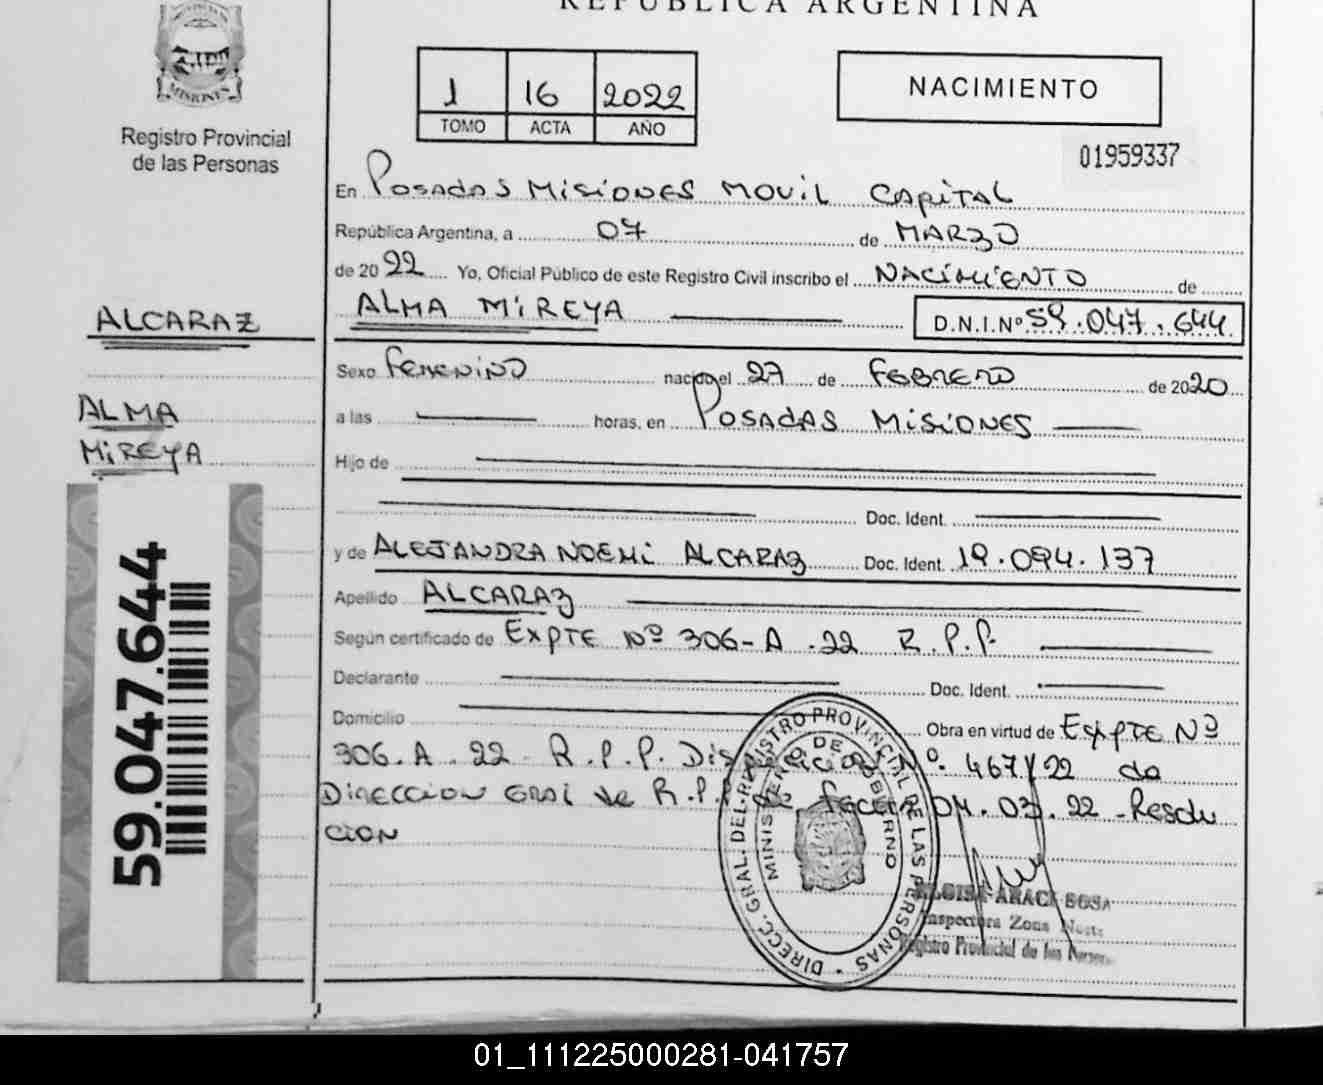 REPÚBLICA ARGENTINA
MISIONES
Registro Provincial
de las Personas
1 16 2022
TOMO ACTA AÑO
NACIMIENTO
01959337
En POSADAS MISIONES MOVIL CAPITAL
República Argentina, a 07 de MARZO
de 2022 Yo, Oficial Público de este Registro Civil inscribo el NACIMIENTO de
ALMA MIREYA D.N.I.Nº 59.047.644
ALCARAZ
ALMA
MIREYA
59.047.644
Sexo FEMENINO nacido el 27 de FEBRERO de 2020
a las horas, en POSADAS MISIONES
Hijo de
Doc. Ident.
y de ALEJANDRA NOEMI ALCARAZ Doc. Ident. 19.094.137
Apellido ALCARAZ
Según certificado de EXPTE Nº 306-A.22 R.P.P.
Declarante Doc. Ident.
Domicilio Obra en virtud de EXPTE Nº
306.A.22 R.P.P. Nº. 467/22 de
DIRECCION GRAL de R.P.P. de FECHA 04.03.22 - Resolu
cion
DIRECC. GRAL. DEL REGISTRO PROVINCIAL DE LAS PERSONAS
MINISTERIO DE GOBIERNO
ARACI SOSA
Inspectora Zona
Registro Provincial de las
01_111225000281-041757